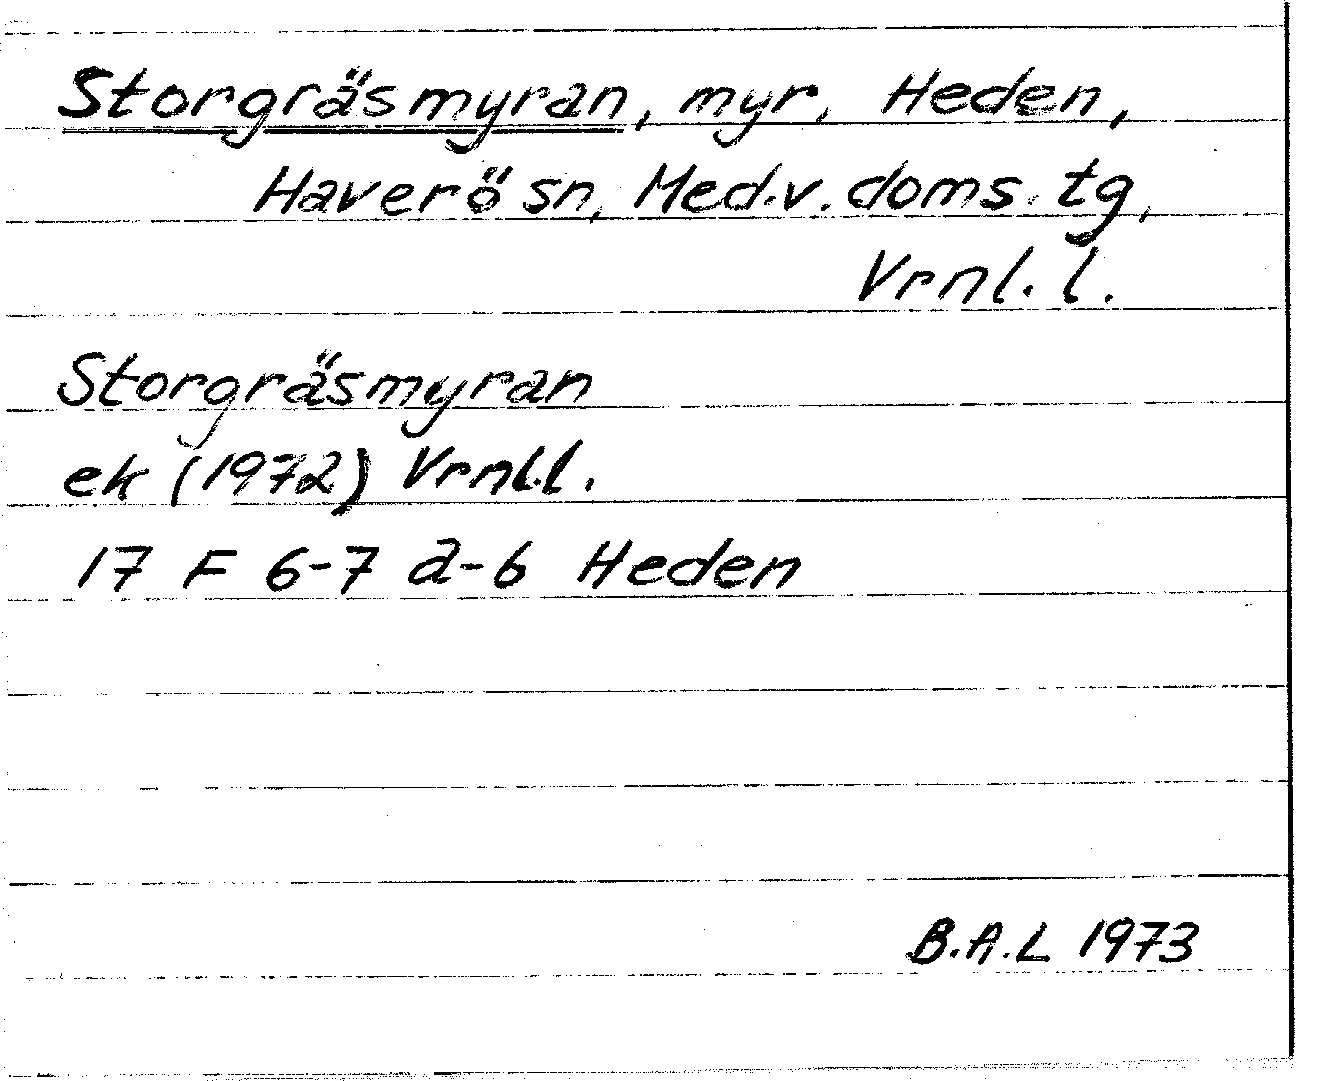 Storgräsmyran, myr, Heden,
Haverö sn, Med.v. doms. tg,
Vrnl. l.
Storgräsmyran
ek (1972) Vrnl.l.
17 F 6-7 a-b Heden
B.A.L 1973